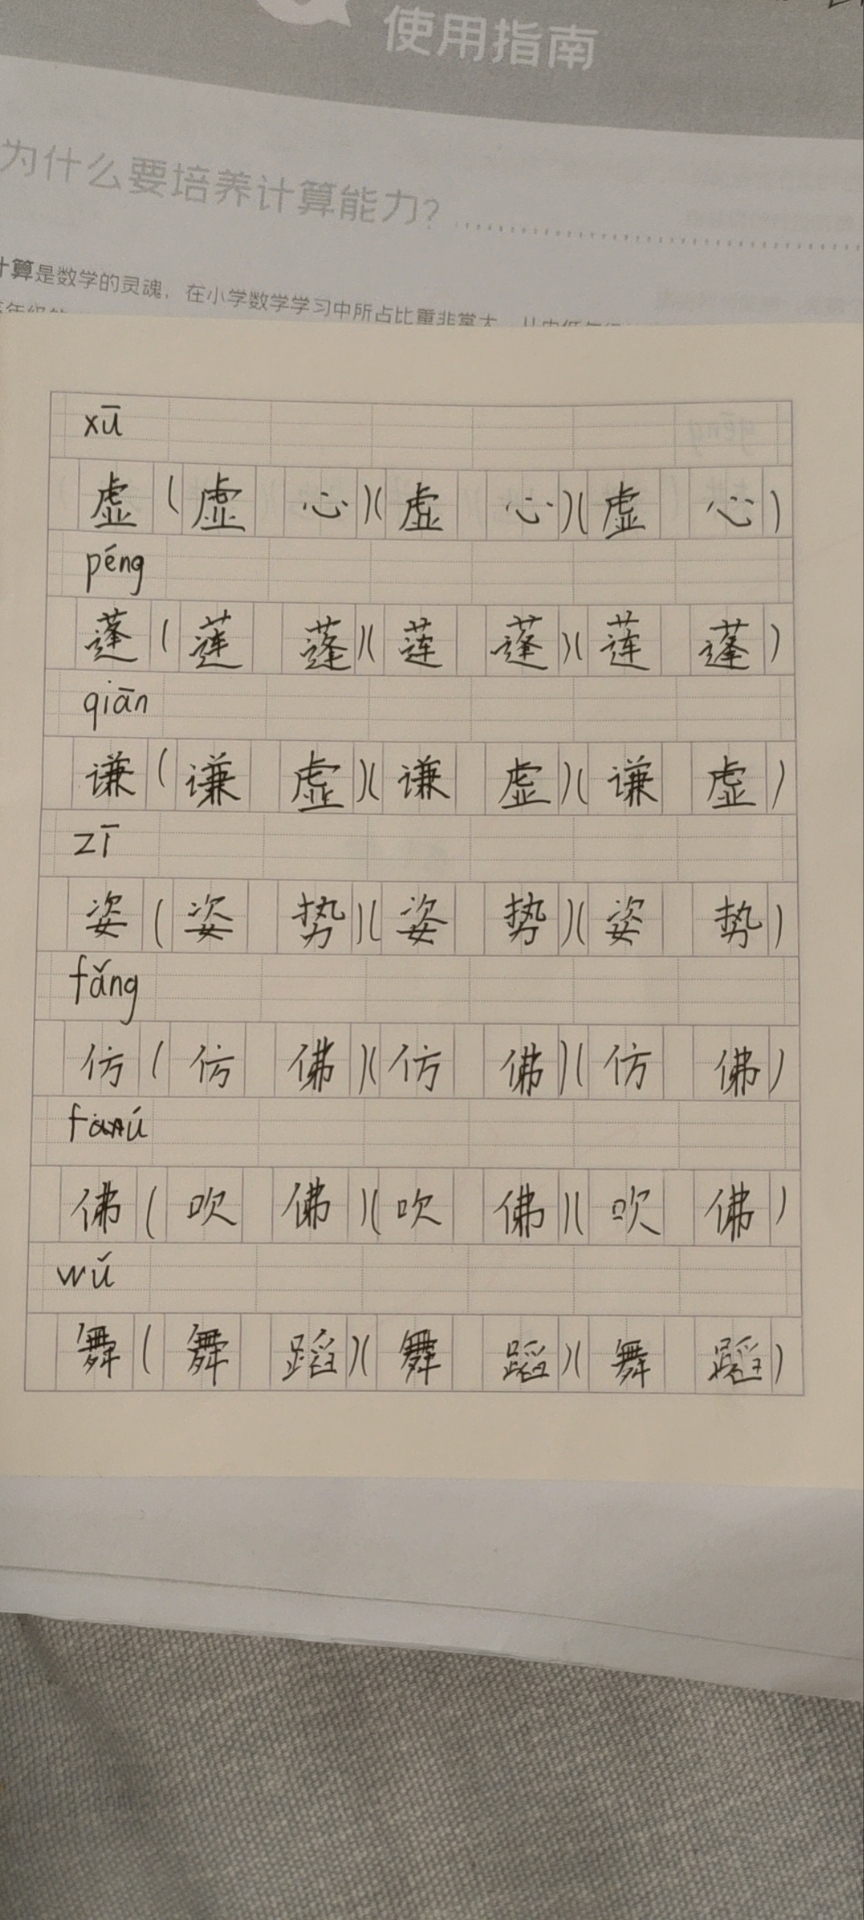 使用指南
为什么要培养计算能力?
计算是数学的灵魂，在小学数学学习中所占比重非常大
xū
虚(虚心)(虚心)(虚心)
péng
蓬(莲蓬)(莲蓬)(莲蓬)
qiān
谦(谦虚)(谦虚)(谦虚)
zī
姿(姿势)(姿势)(姿势)
fǎng
仿(仿佛)(仿佛)(仿佛)
佛(吹佛)(吹佛)(吹佛)
wǔ
舞(舞蹈)(舞蹈)(舞蹈)